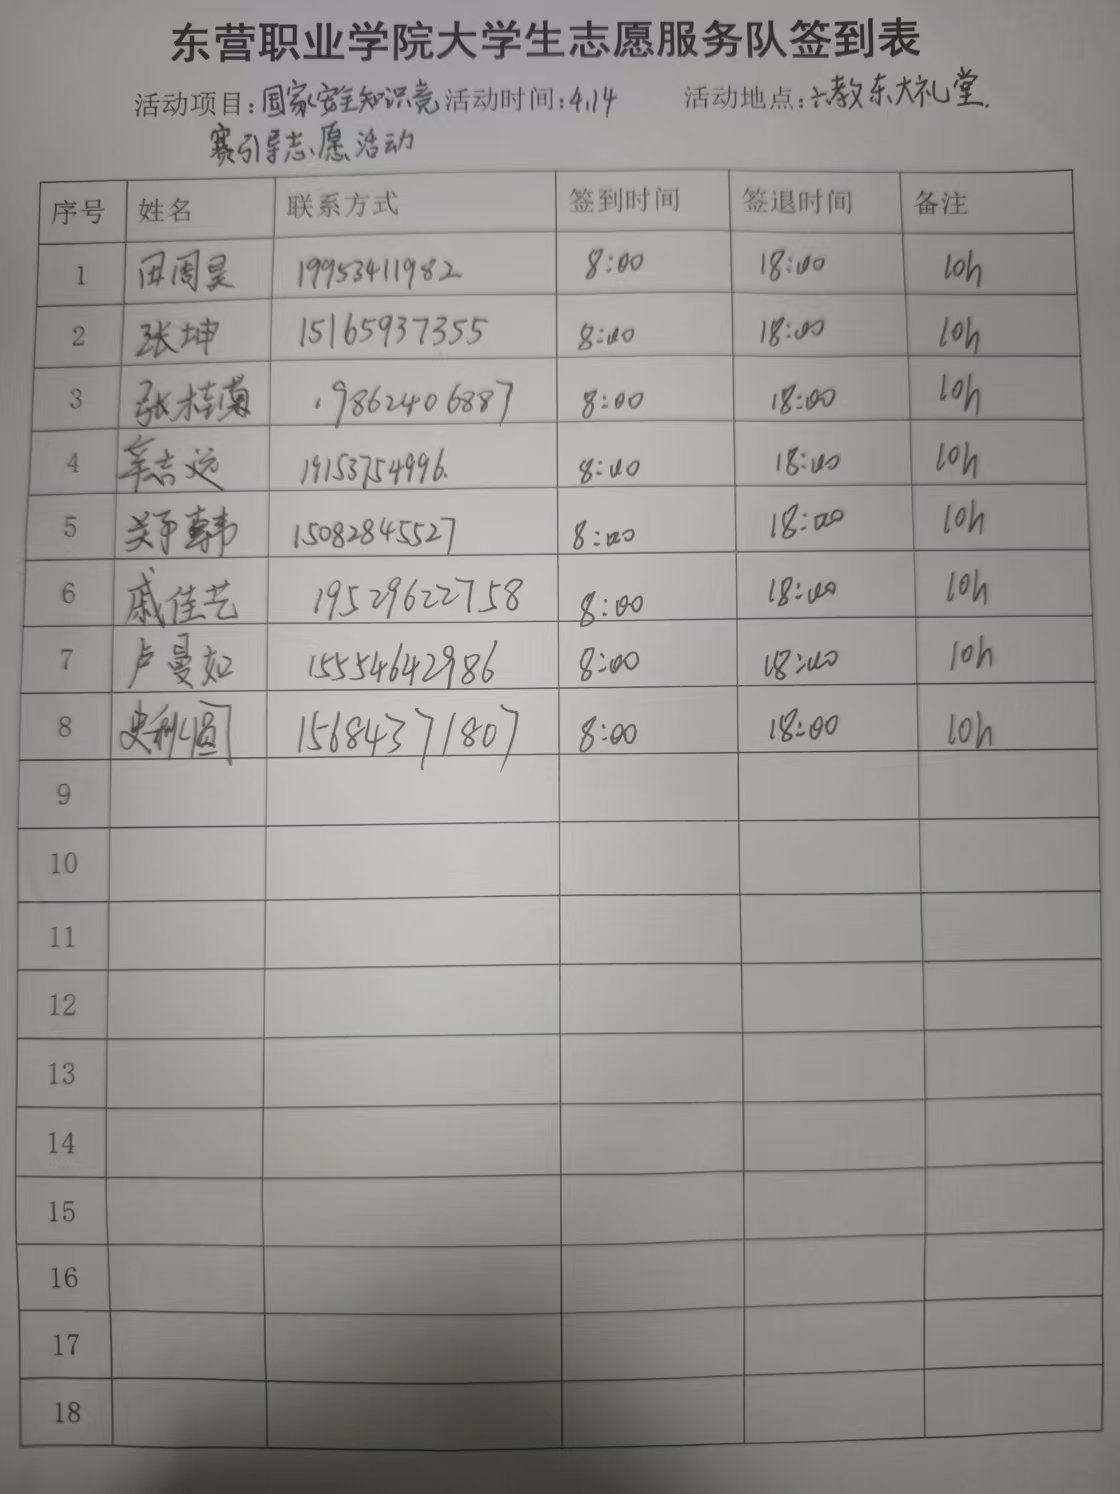 东营职业学院大学生志愿服务队签到表
活动项目：国家安全知识竞 活动时间：4.14 活动地点：六教东大礼堂.
赛引导志愿活动
序号 姓名 联系方式 签到时间 签退时间 备注
1 田周昊 19953411982 8:00 18:00 10h
2 张坤 15165937355 8:00 18:00 10h
3 张桂菊 .9862406887 8:00 18:00 10h
4 辛志远 19153754996. 8:00 18:00 10h
5 郑韩 15082845527 8:00 18:00 10h
6 戚佳艺 19529622758 8:00 18:00 10h
7 卢曼如 15554642986 8:00 18:00 10h
8 史利圆 15684371807 8:00 18:00 10h
9
10
11
12
13
14
15
16
17
18